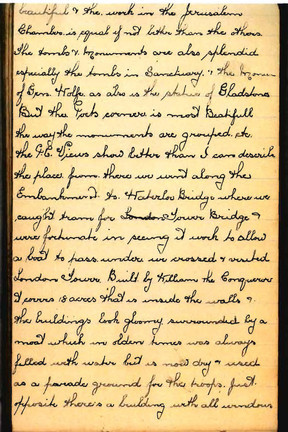 beautiful & the work in the Jerusalem
Chamber is equal if not better than the others
The tombs & monuments are also splendid
especially the tombs in Sanctuary. & the Monum
of Gen. Wolfe. as also is the statue of Gladstone
But the Poets corner is most Beatifull
the way the monuments are grouped. etc.
the P.C. Views show better than I can describe
the place from there we went along the
Embankment to Waterloo Bridge where we
caught tram for London Tower Bridge &
were fortunate in seeing it work to allow
a boat to pass under we crossed & visited
London Tower. Built by William the Conqueror
it covers 18 acres that is inside the walls &
the buildings look gloomy surrounded by a
moat which in olden times was always
filled with water but is now dry & used
as a parade ground for the troops. Just
opposite there's a building with all windows